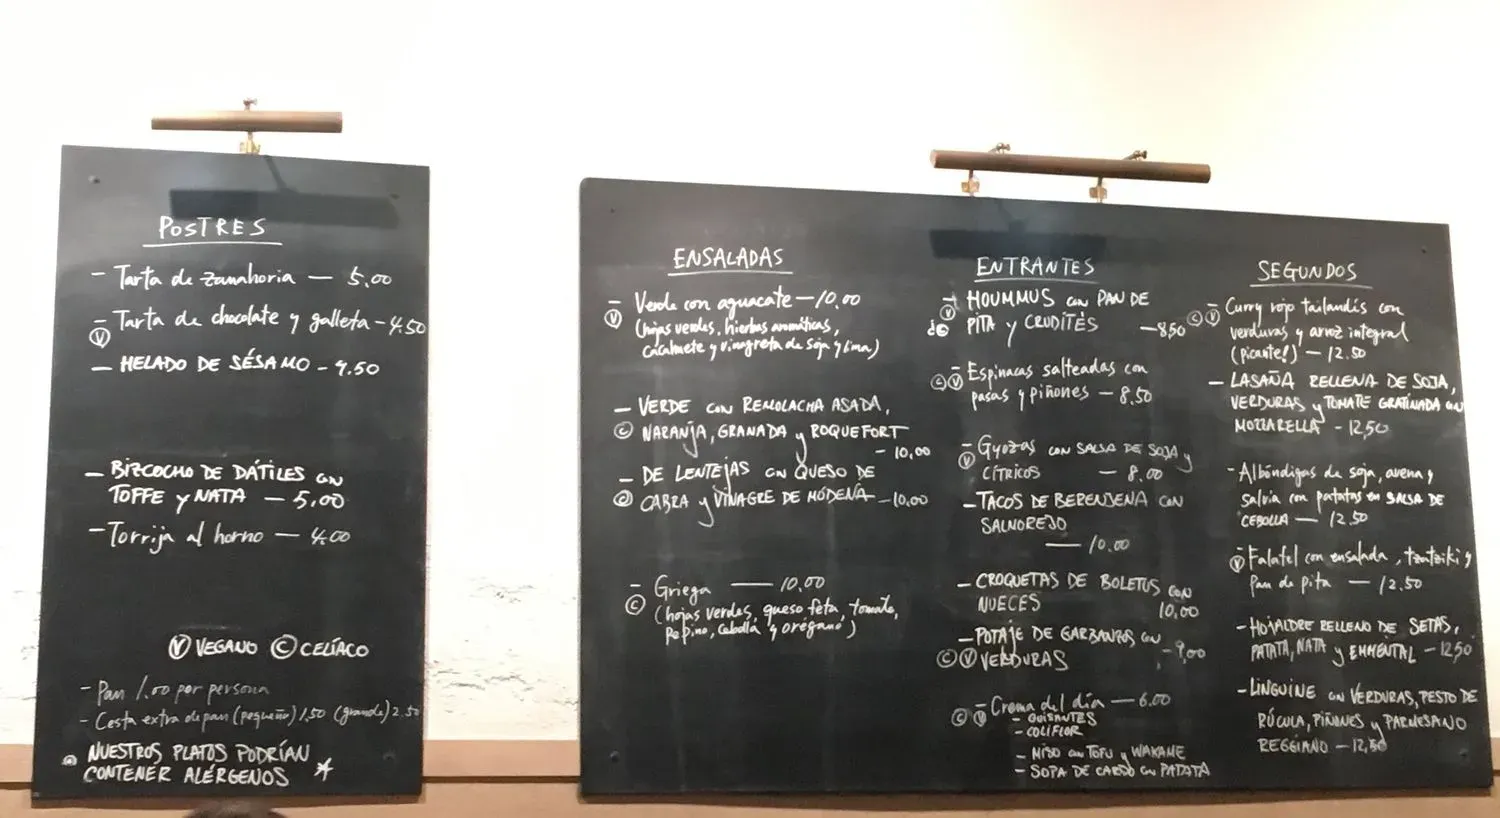 POSTRES
- Tarta de zanahoria — 5.00
- Tarta de chocolate y galleta - 4.50
Ⓥ
- HELADO DE SÉSAMO - 4.50
- BIZCOCHO DE DÁTILES CON
TOFFE Y NATA — 5,00
- Torrija al horno — 4.00
Ⓥ VEGANO Ⓒ CELÍACO
- Pan 1.00 por persona
- Cesta extra de pan (pequeño) 1,50 (grande) 2.50
NUESTROS PLATOS PODRÍAN
CONTENER ALÉRGENOS *
ENSALADAS
- Verde con aguacate — 10.00
Ⓥ (hojas verdes, hierbas aromáticas,
cacahuete y vinagreta de soja y lima)
- VERDE CON REMOLACHA ASADA,
Ⓒ NARANJA, GRANADA Y ROQUEFORT
- 10,00
- DE LENTEJAS CON QUESO DE
Ⓒ CABRA Y VINAGRE DE MÓDENA - 10,00
- Griega — 10.00
Ⓒ (hojas verdes, queso feta, tomate,
pepino, cebolla y orégano)
ENTRANTES
- HOUMMUS CON PAN DE
Ⓥ PITA Y CRUDITÉS — 8,50
- Espinacas salteadas con
ⒸⓋ pasas y piñones — 8.50
- Gyozas CON SALSA DE SOJA Y
Ⓥ CÍTRICOS — 8.00
- TACOS DE BERENJENA CON
SALMOREJO
— 10.00
- CROQUETAS DE BOLETUS CON
NUECES 10,00
- POTAJE DE GARBANZOS CON
ⒸⓋ VERDURAS - 9,00
- Crema del día — 6.00
ⒸⓋ - GUISANTES
- COLIFLOR
- MISO CON TOFU Y WAKAME
- SOPA DE CARDO CON PATATA
SEGUNDOS
- Curry rojo tailandés con
ⒸⓋ verduras y arroz integral
(picante!) — 12.50
- LASAÑA RELLENA DE SOJA,
VERDURAS Y TOMATE GRATINADA CON
MOZZARELLA - 12,50
- Albóndigas de soja, avena y
salvia con patatas en SALSA DE
CEBOLLA — 12.50
- Falafel con ensalada, tzatziki y
Ⓥ Pan de pita — 12.50
- HOJALDRE RELLENO DE SETAS,
PATATA, NATA Y EMMENTAL - 12,50
- LINGUINE CON VERDURAS, PESTO DE
RÚCULA, PIÑONES Y PARMESANO
REGGIANO - 12,50